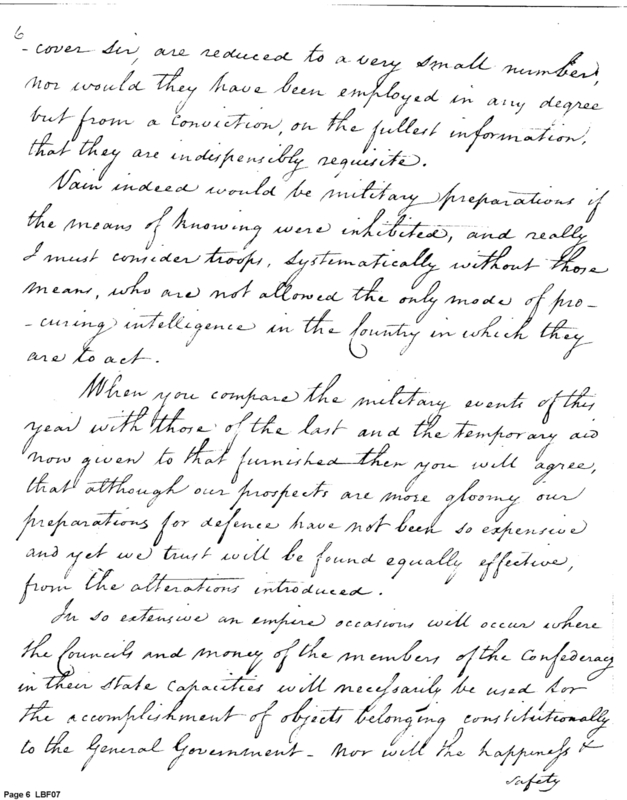 6
-cover Sir, are reduced to a very small number,
nor would they have been employed in any degree
but from a conviction, on the fullest information,
that they are indispensibly requisite.
Vain indeed would be military preparations if
the means of knowing were inhibited, and really
I must consider troops, systematically without those
means, who are not allowed the only mode of pro-
-curing intelligence in the Country in which they
are to act.
When you compare the military events of this
year with those of the last and the temporary aid
now given to that furnished then you will agree,
that although our prospects are more gloomy our
preparations for defence have not been so expensive
and yet we trust will be found equally effective,
from the alterations introduced.
In so extensive an empire occasions will occur where
the Councils and money of the members of the Confederacy
in their State Capacities will necessarily be used for
the accomplishment of objects belonging constitutionally
to the General Government - Nor will the happiness &
safety
Page 6 LBF07